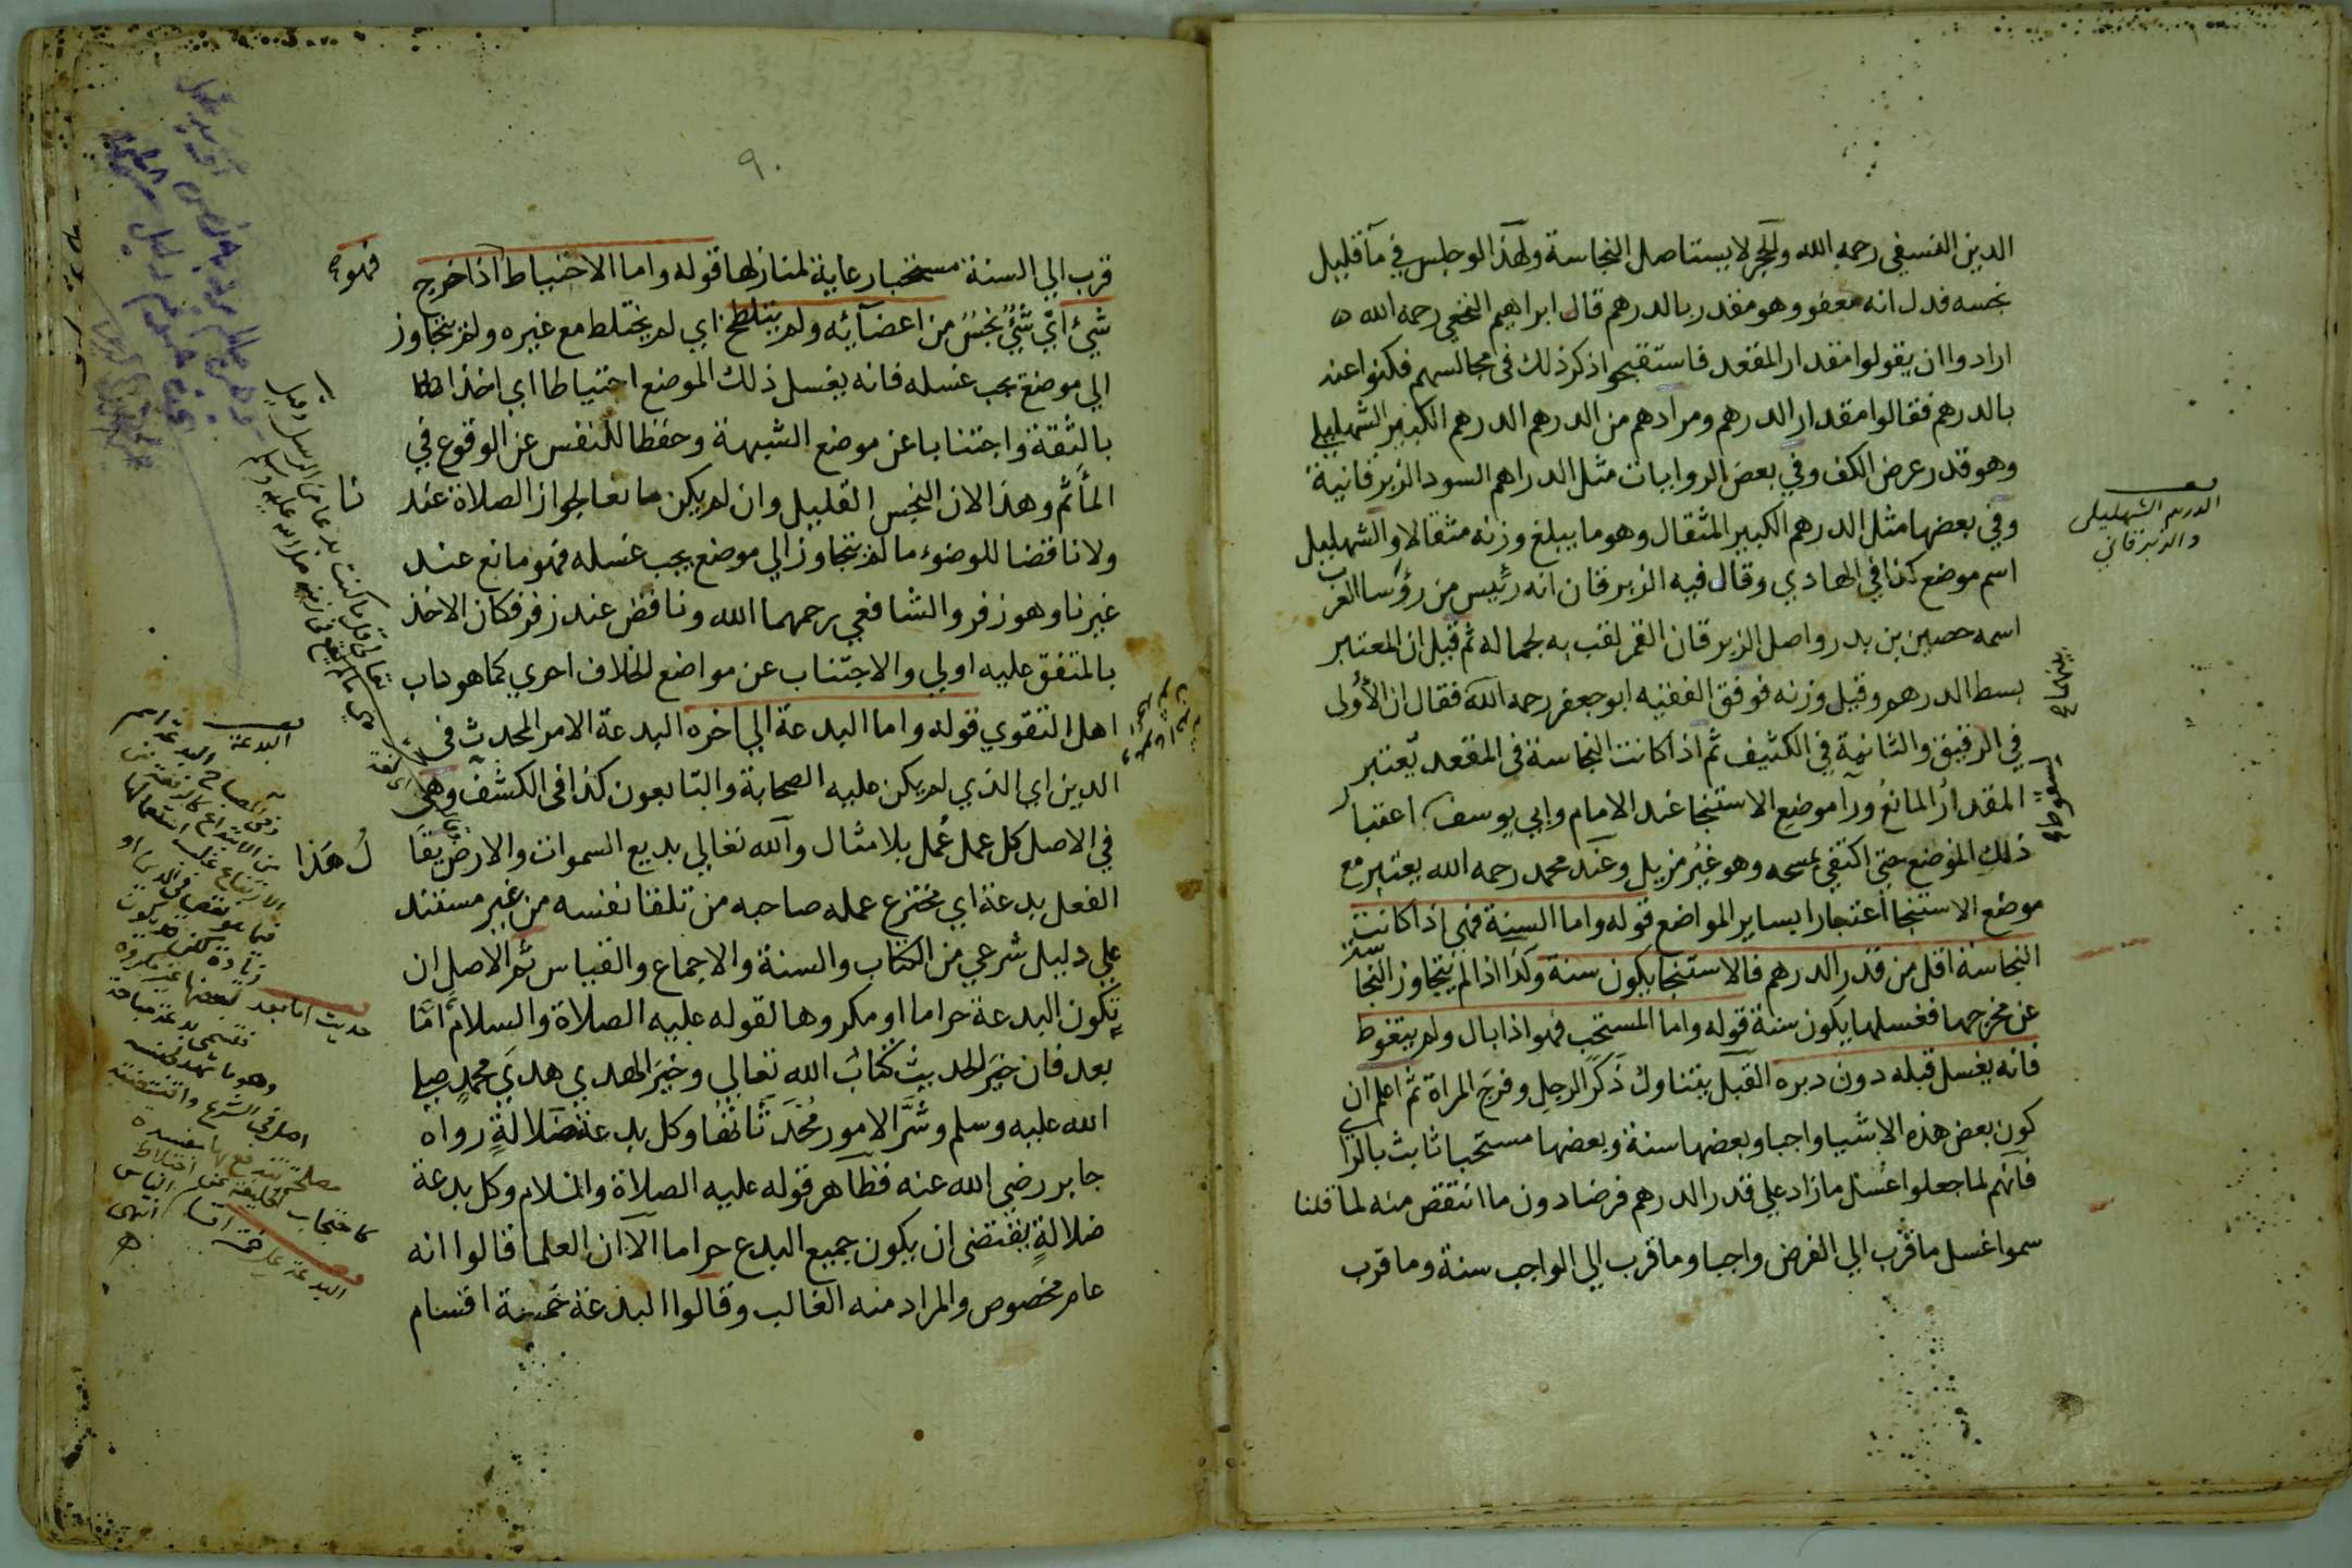 الدين النسفي رحمه الله والحجر لا يستاصل النجاسة ولهذا لو جلس في مآ قليل
نجسه فدل انه معفو وهو مقدر بالدرهم قال ابراهيم النخعي رحمه الله ه
ارادوا ان يقولوا مقدار المقعد فاستقبحوا ذكر ذلك في مجالسهم فكنوا عنه
بالدرهم فقالوا مقدار الدرهم ومرادهم من الدرهم الدرهم الكبير الشهليلي
وهو قدر عرض الكف وفي بعض الروايات مثل الدراهم السود الزبرقانية
وفي بعضها مثل الدرهم الكبير المثقال وهو ما يبلغ وزنه مثقالا والشهليل
اسم موضع كذا في الهادي وقال فيه الزبرقان انه رئيس من رؤسا العرب
اسمه حصين بن بدر واصل الزبرقان القمر لقب به لجماله ثم قيل ان المعتبر
بسط الدرهم وقيل وزنه فوفق الفقيه ابو جعفر رحمه الله فقال ان الأولى
في الرقيق والثانية في الكثيف ثم اذا كانت النجاسة في المقعد يعتبر
المقدار المانع ورآ موضع الاستنجا عند الامام وابي يوسف اعتبار
ذلك الموضع حتى اكتفي بمسحه وهو غير مزيل وعند محمد رحمه الله يعتبر مع
موضع الاستنجا اعتبارا بساير المواضع قوله واما السنة فهي اذا كانت
النجاسة اقل من قدر الدرهم فالاستنجا يكون سنة وكذا اذا لم يتجاوز النجاسة
عن مخرجها فغسلها يكون سنة قوله واما المستحب فهو اذا بال ولم يتغوط
فانه يغسل قبله دون دبره القبل يتناول ذكر الرجل وفرج المراة ثم اعلم ان
كون بعض هذه الاشيا واجبا وبعضها سنة وبعضها مستحبا ثابث بالراي
فانهم لما جعلوا غسل ما زاد علي قدر الدرهم فرضا دون ما انتقض منه لما قلنا
سموا غسل ما قرب الي الفرض واجبا وما قرب الي الواجب سنة وما قرب
الدرهم الشهليلي
والزبرقاني
٩٠
قرب الي السنة مستحبا رعاية لمنازلها قوله واما الاحتياط اذا خرج
فهو
شيئ اي شيئ نجس من اعضآئه ولم يتلطخ اي لم يختلط مع غيره ولم يتجاوز
الي موضع يجب غسله فانه يغسل ذلك الموضع احتياطا اي اخذا
بالثقة واجتنابا عن موضع الشبهة وحفظا للنفس عن الوقوع في
المأثم وهذا لان النجس القليل وان لم يكن مانعا لجواز الصلاة عند
نا
ولا ناقضا للوضوء ما لم يتجاوز الي موضع يجب غسله فهو مانع عند
غيرنا وهو زفر والشافعي رحمهما الله وناقض عند زفر فكان الاخذ
بالمتفق عليه اولي والاجتناب عن مواضع الخلاف احري كما هو داب
اهل التقوي قوله واما البدعة الي اخره البدعة الامر المحدث في
الدين اي الذي لم يكن عليه الصحابة والتابعون كذا في الكشف وهي
في الاصل كل عمل عمل بلا مثال والله تعالي بديع السموات والارض يقا
ل هذا
الفعل بدعة اي مخترع عمله صاحبه من تلقا نفسه من غير مستند
علي دليل شرعي من الكتاب والسنة والاجماع والقياس ثم الاصل ان
تكون البدعة حراما او مكروها لقوله عليه الصلاة والسلام امّا
بعد فان خير الحديث كتاب الله تعالي وخير الهدي هدي محمد صلي
الله عليه وسلم وشر الامور محدثاتها وكل بدعة ضلالة رواه
جابر رضي الله عنه فظاهر قوله عليه الصلاة والسلام وكل بدعة
ضلالة يقتضي ان يكون جميع البدع حراما الا ان العلما قالوا انه
عام مخصوص والمراد منه الغالب وقالوا البدعة خمسة اقسام
البدعة
حديث اما بعد
اصل في الشرع واقتضته
كاحتجاب الخليفة عن اختلاط
الناس انتهى
البدعة علي خمسة اقسام